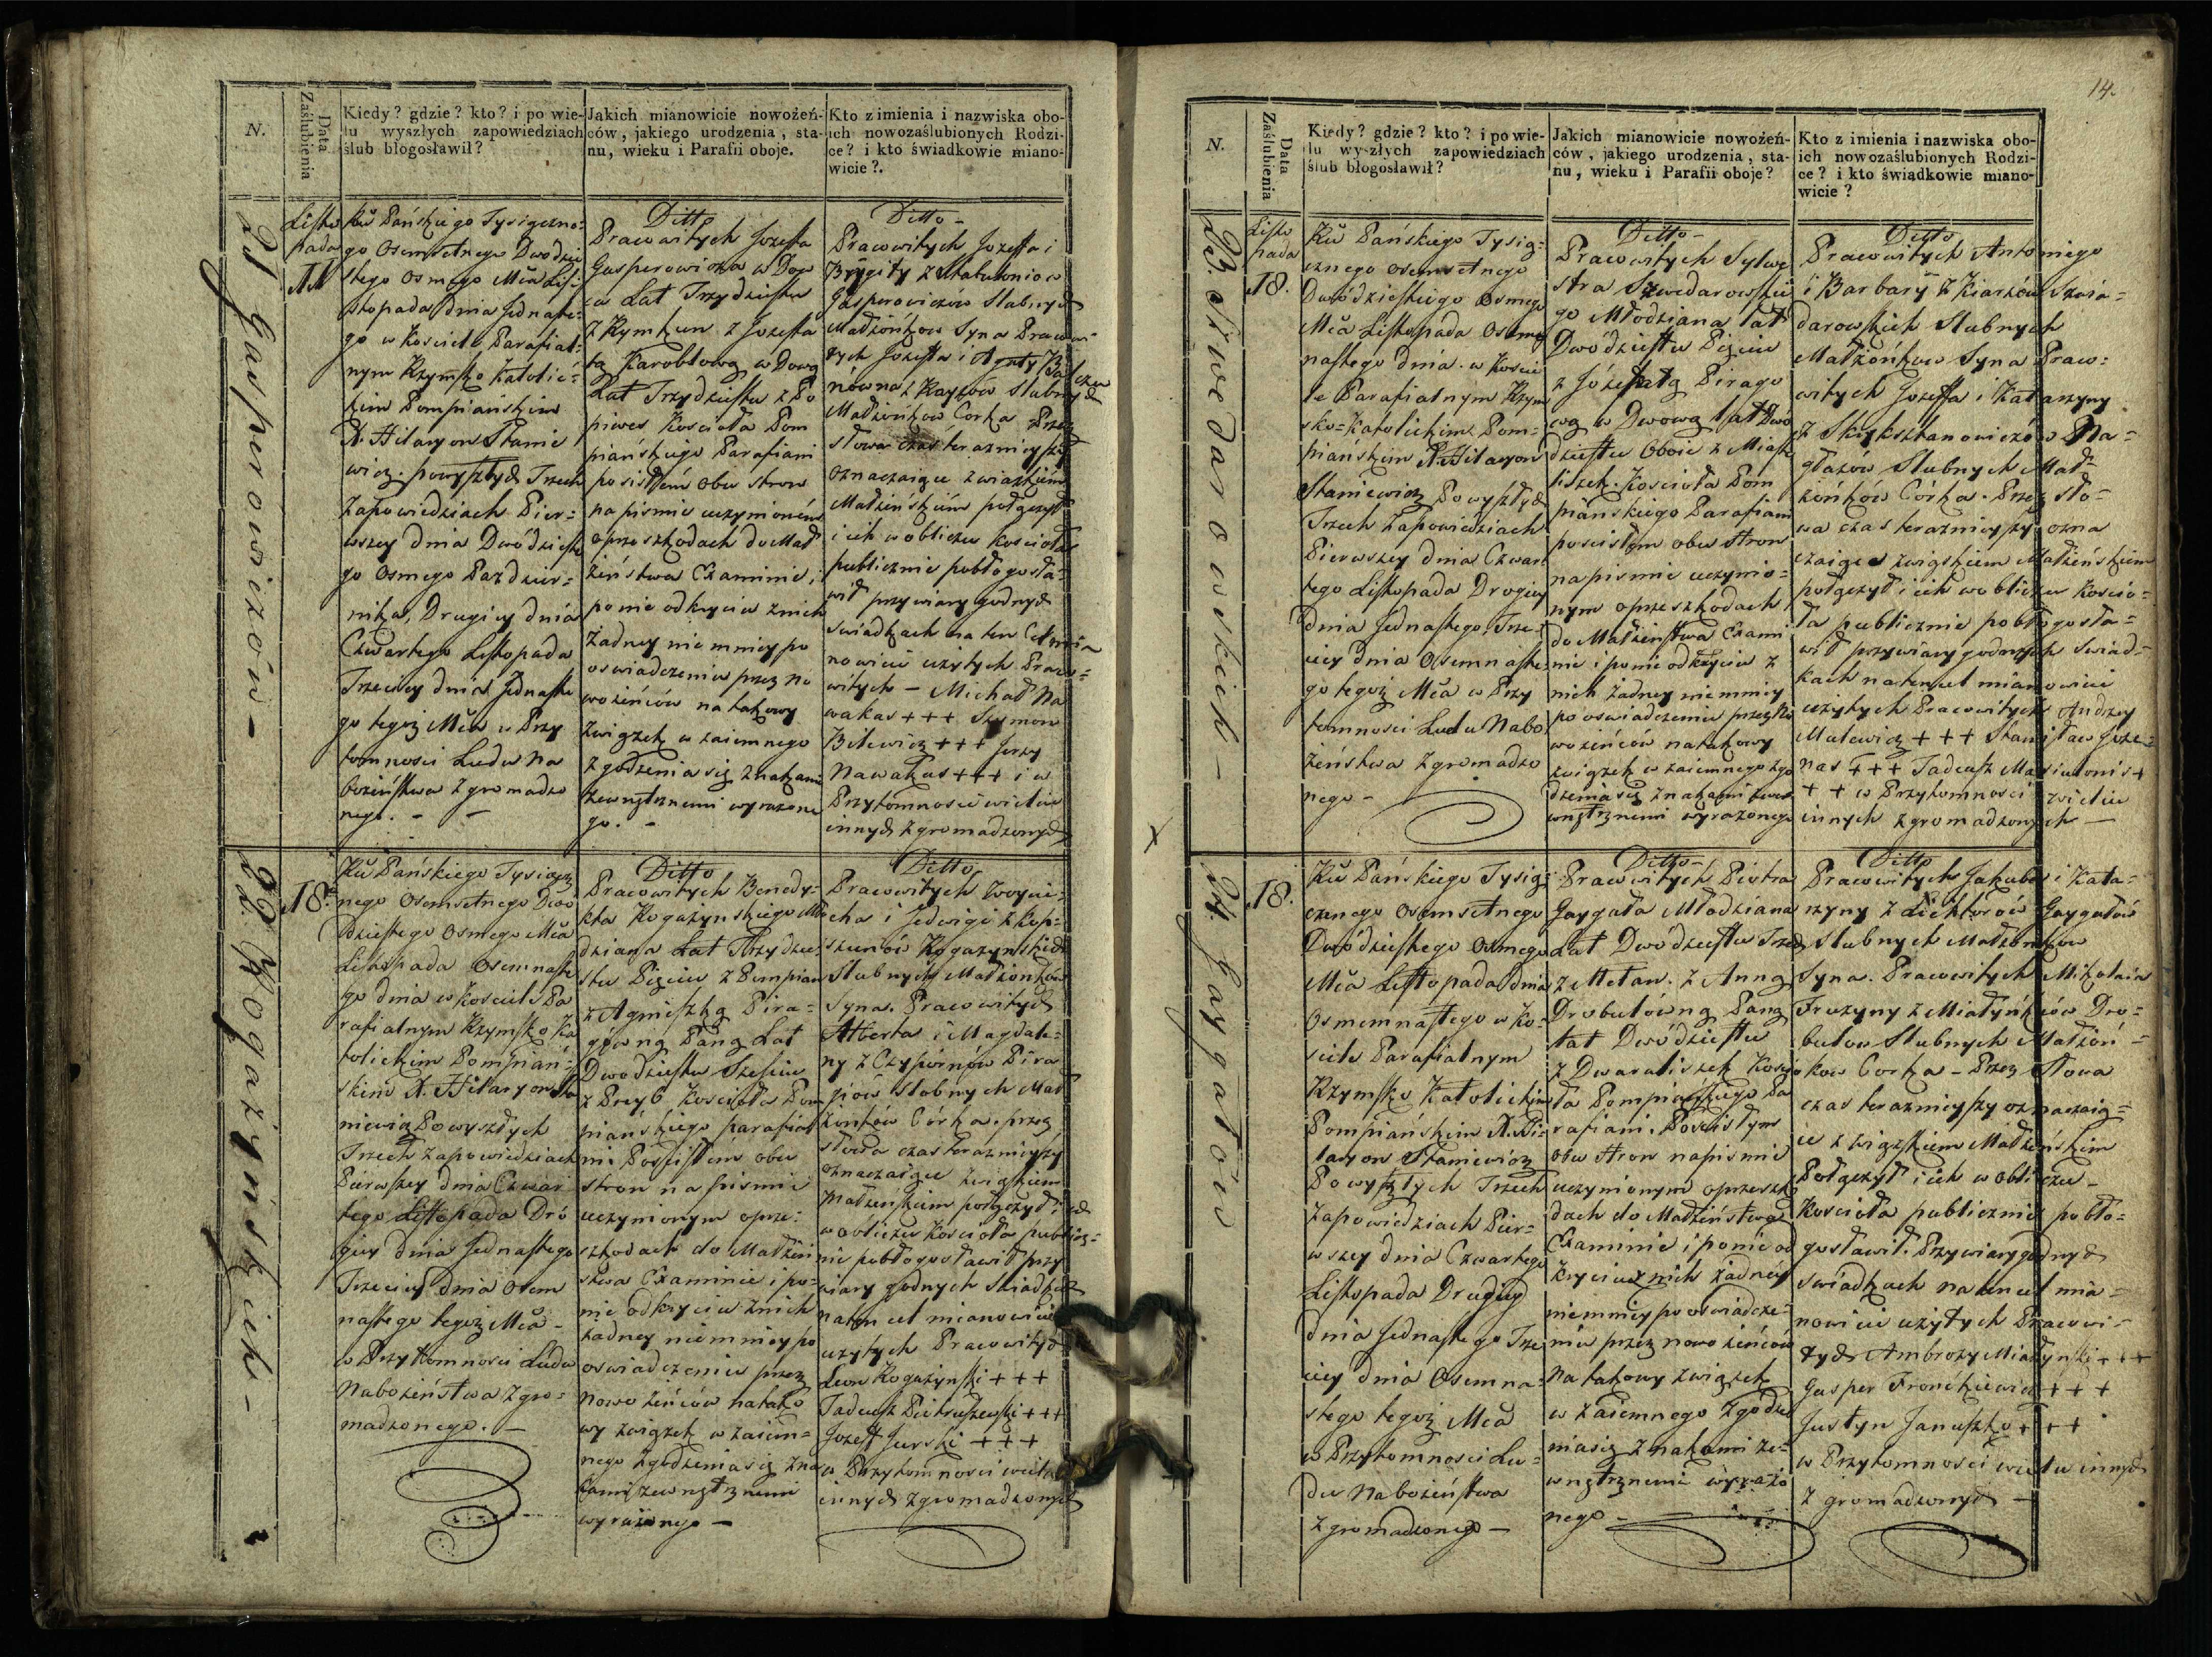 N.
Data Zaślubienia
Kiedy? gdzie? kto? i po wie-
lu wyszłych zapowiedziach
ślub błogosławił?
Jakich mianowicie nowożeń-
ców, jakiego urodzenia, sta-
nu, wieku i Parafii oboje.
Kto z imienia i nazwiska obo-
ich nowozaślubionych Rodzi-
ce? i kto świadkowie miano-
wicie?.
21 Gasperowiczów -
Listo
pada
11
Ru Pańskiego Tysiączne-
go Osemsetnego Dwódzie
stego osmego Mca Lis-
stopada dnia Jednaste-
go w Kosciele Parafial-
nym Rzymsko Katolic-
kim Pompiańskim
X. Hilaryon Stanie
wicz. powyszłych Trzech
Zapowiedziach Pier-
wszey dnia Dwódzieste
go Osmego Pazdzier-
nika, Drugiey dnia
Czwartego Listopada
Trzeciey dnia Jednaste
go tegoż Mca w Przy
tomnosci Ludu na
bożeństwa zgromadzo
nego. - -
Ditto
Pracowitych Jozeffa
Gasperowicza wdow
ca Lat Trzydziestu
z Rymkun z Jozeffa
tą Karoblową wdową
Lat Trzydziestu z Po
piwes Kosciola Pom
piańskiego Parafiani
po scisłém obu stron
na pismie uczynioném
oprzeszkodach do Mał
żeństwa Examinie, i
po nie odkryciu z nich
żadney nie mniey po
oswiadczeniu przez no
wożeńców na takowy
związek wzaiemnego
zgodzenia się znakami
zewnętrznemi wyrażone
go. -
Ditto -
Pracowitych Jozeffa i
Brygity z
Gasperowiczów Slubnych
Małżonkow Syna Pracowi
tych Jozeffa i Agaty
nówna z Slubnych
Małżonkow Corka Przez
słowa czas teraznieyszy
oznaczaiące związkiem
Małżeńskim połączył
i ich w obliczu Kosciola
publicznie pobłogosła-
wił przy wiary godnych
swiadkach na ten Cel mia
nowicie użytych Praco-
witych - Michał Na
wakas +++ Szymon
Bilewicz +++ Jerzy
Nawakas +++ i w
Przytomnosci wielu
innych zgromadzonych
22. Rogażyńskich -
18.
Ru Pańskiego Tysiącz
nego Osemsetnego Dwo
dziestego Osmego Mca
Listopada Osemnaste
go dnia w Kosciele Pa
rafialnym Rzymsko Ka
tolickim Pompiań-
skim X. Hilaryon Sta
niewicz Powyszłych
Trzech Zapowiedziach
Pierwszey dnia Czwar
tego Listopada Dru
giey dnia Jednastego
Trzeciey dnia Osem
nastego tegoż Mca -
w Przytomnosci Ludu
Nabożeństwa zgro-
madzonego. -
Ditto
Pracowitych Benedy-
kta Rogażynskiego Mło
dziana Lat Trzydzie-
stu Pięciu z Pompian
z Agnieszką Pira-
gówną Panną Lat
Dwodziestu Szesciu
z Kosciola Pom
piańskiego parafia
ni Poscisłém obu
stron na pismie
uczynionym oprze-
szkodach do Małżeń
stwa Examinie i po-
nie odkryciu z nich
żadney niemniey po
oswiadczeniu przez
nowożeńców na tako
wy związek wzaiem-
nego zgodzenia się zna
kami zewnętrznemi
wyrażonego -
Ditto
Pracowitych Woycie-
cha i Jedwigi z
Rogażynskich
Slubnych Małżonkow
Syna. Pracowitych
Alberta i Magdale-
ny z Pira
giow Slubnych Mał
żonków Córka. przez
słowa czas teraznieyszy
oznaczaiące związkiem
Małżeńskim połączył i ich
w obliczu Kosciola publicz-
nie pobłogosławił przy
wiary godnych Swiadkach
na ten cel mianowicie
użytych Pracowitych
Leon Rogażyński +++
Tadeusz Pietruszewski +++
Jozeff Jurski +++
w Przytomnosci wielu
innych zgromadzonych
14.
N.
Data Zaślubienia
Kiedy? gdzie? kto? i po wie-
lu wyszłych zapowiedziach
ślub błogosławił?
Jakich mianowicie nowożeń-
ców, jakiego urodzenia, sta-
nu, wieku i Parafii oboje?
Kto z imienia i nazwiska obo-
ich nowozaślubionych Rodzi-
ce? i kto świadkowie miano-
wicie?
23. Szwedarowskich -
Listo
pada
18.
Ru Pańskiego Tysią-
cznego Osemsetnego
Dwódziestego Osmego
Mca Listopada Osem
nastego dnia. w Koscie
le Parafialnym Rzym
sko-Katolickim Pom-
piańskim X. Hilaryon
Staniewicz Powyszłych
Trzech Zapowiedziach
Pierwszey dnia Czwar
tego Listopada Drugiey
dnia Jednastego, Trze-
ciey dnia Osemnaste-
go tegoż Mca w Przy
tomnosci Ludu Nabo
żeństwa zgromadzo
nego -
Ditto -
Pracowitych Sylwe
stra Szwedarowskie
go Młodziana lat
Dwódziestu Pięciu
z Józefatą Pirago
wą Wdową lat Dwó
dziestu Oboie z
liszek. Kosciola Pom
piańskiego Parafiani
poscisłym obu stron
na pismie uczynio-
nym oprzeszkodach
do Małżeństwa Exami
nie i ponie odkryciu z
nich żadney niemniey
po oswiadczeniu przez No
wożeńców na takowy
związek wzaiemnego zgo
dzenia się znakami ze
wnętrznemi wyrażonego
Ditto
Pracowitych Antoniego
i Barbary z Szwe-
darowskich Slubnych
Małżonkow Syna Praco-
witych Jozeffa i Katarzyny
z
Slubnych Mał-
żonków Córka. Przez sło-
wa czas teraznieyszy ozna
czaiące związkiem Małżeńskim
połączył i ich w obliczu Koscio-
ła publicznie pobłogosła-
wił przy wiary godnych Swiad-
kach na ten cel mianowicie
użytych Pracowitych Andrzey
Malewicz +++ Stanisław
nas +++ Tadeusz +
++ w Przytomnosci wielu
innych zgromadzonych -
24. Gaygałów
18.
Ru Pańskiego Tysią-
cznego Osemsetnego
Dwódziestego Osmego
Mca Listopada dnia
Osmemnastego w Ko-
sciele Parafialnym
Rzymsko Katolickim
Pompiańskim X. Hi-
laryon Staniewicz
Powyszłych Trzech
Zapowiedziach Pier-
wszey dnia Czwartego
Listopada Drugiey
dnia Jednastego Trze
ciey dnia Osemna-
stego tegoż Mca
w Przytomnosci Lu-
du Nabożeństwa
zgromadzonego -
Ditto -
Pracowitych Piotra
Gaygała Młodziana
Lat Dwódziestu Trzech
z Metan. z Anną
Drobutówną Panną
lat Dwódziestu
z Dwaraliszek Koscio
ła Pompiańskiego Pa
rafiani. Poscisłym
obu stron na pismie
uczynionym oprzeszko
dach do Małżeństwa
Examinie i ponie od
kryciu z nich żadney
niemniey po oswiadcze-
niu przez nowożeńców
Na takowy związek
wzaiemnego zgodze
nia się znakami ze-
wnętrznemi wyrażo
nego -
Ditto
Pracowitych Jakuba i Kata-
rzyny z Gaygałów
Slubnych Małżonkow
Syna. Pracowitych Mikołaia
Fruzyny z Dro-
butow Slubnych Małżon-
kow Corka - Przez Słowa
czas teraznieyszy oznaczaią-
ce związkiem Małżeńskim
Połączył i ich w obliczu
Kosciola publicznie pobło-
gosławił. Przy wiary godnych
Swiadkach na ten cel mia-
nowicie użytych Pracowi-
tych Ambroży +++
Gasper Fronckiewicz +++
Justyn Januszko +++
w Przytomnosci wielu innych
zgromadzonych -